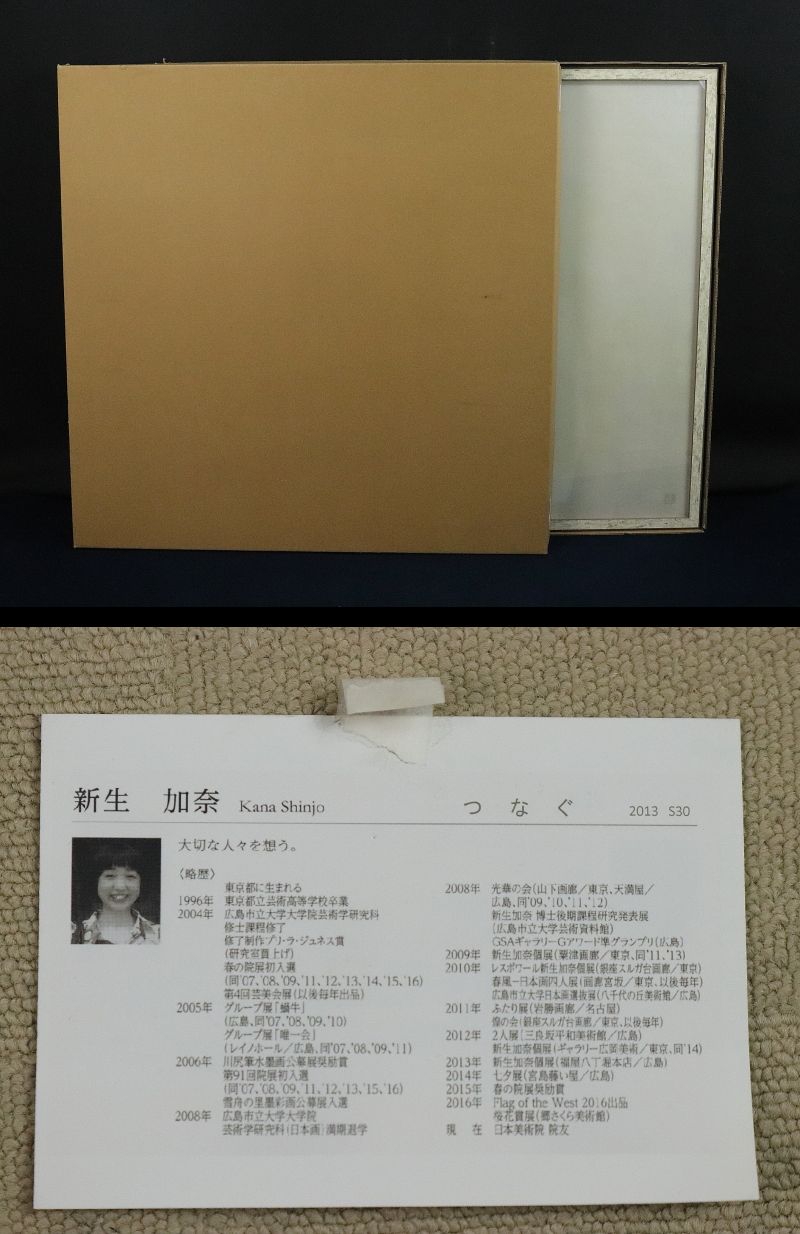 新生　加奈　Kana Shinjo　つ な ぐ　2013　S30
大切な人々を想う。
〈略歴〉
東京都に生まれる
1996年　東京都立芸術高等学校卒業
2004年　広島市立大学大学院芸術学研究科
修士課程修了
修了制作プリ・ラ・ジュネス賞
(研究室買上げ)
春の院展初入選
(同'07、'08、'09、'11、'12、'13、'14、'15、'16)
第4回芸美会展(以後毎年出品)
2005年　グループ展「蝸牛」
(広島、同'07、'08、'09、'10)
グループ展「唯一会」
(レイノホール／広島、同'07、'08、'09、'11)
2006年　川尻筆水墨画公募展奨励賞
第91回院展初入選
(同'07、'08、'09、'11、'12、'13、'15、'16)
雪舟の里墨彩画公募展入選
2008年　広島市立大学大学院
芸術学研究科(日本画)満期退学
2008年　光華の会(山下画廊／東京、天満屋／
広島、同'09、'10、'11、'12)
新生加奈 博士後期課程研究発表展
(広島市立大学芸術資料館)
GSAギャラリーGアワード準グランプリ(広島)
2009年　新生加奈個展(粟津画廊／東京、同'11、'13)
2010年　レスポワール新生加奈個展(銀座スルガ台画廊／東京)
春風－日本画四人展(画廊宮坂／東京、以後毎年)
広島市立大学日本画選抜展(八千代の丘美術館／広島)
2011年　ふたり展(岩勝画廊／名古屋)
煌の会(銀座スルガ台画廊／東京、以後毎年)
2012年　2人展(三良坂平和美術館／広島)
新生加奈個展(ギャラリー広岡美術／東京、同'14)
2013年　新生加奈個展(福屋八丁堀本店／広島)
2014年　七夕展(宮島藤い屋／広島)
2015年　春の院展奨励賞
2016年　Flag of the West 2016出品
桜花賞展(郷さくら美術館)
現　在　日本美術院 院友